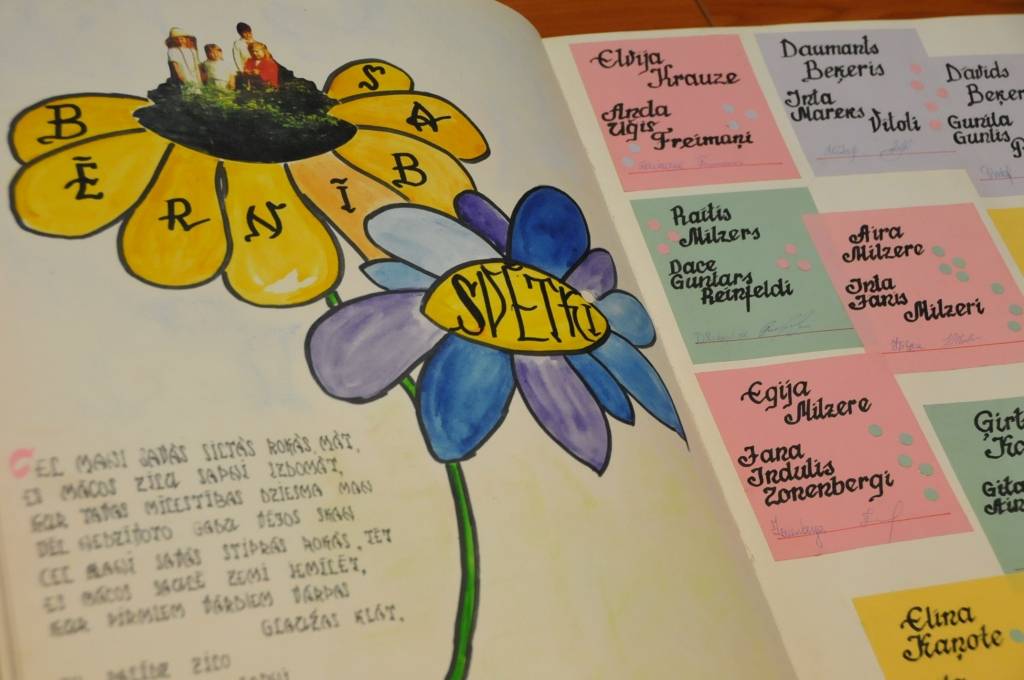 BĒRNĪBAS
SVĒTKI
CEL MANI SAVĀS SILTĀS ROKĀS, MĀT,
ES MĀCOS ZILU SAPNI IZDOMĀT,
KUR TAVAS MĪLESTĪBAS DZIESMA MAN
VĒL NEDZĪVOTO GADU VĒJOS SKAN
CEL MANI SAVĀS STIPRĀS ROKĀS, TĒT
ES MĀCOS SAULĒ ZEMI IEMĪLĒT,
KUR PIRMIEM VĀRDIEM VĀRPAS
GLAUŽAS KLĀT.
ZILO
Elvija
Krauze
Anda
Uģis
Freimaņi
Daumants
Beķeris
Inta
Mareks
Vītoli
Dāvids
Gunita
Guntis
Raitis
Milzers
Dace
Guntars
Reinfeldi
Aira
Milzere
Inta
Jānis
Milzeri
Egija
Milzere
Jana
Indulis
Zonenbergi
Elīna
Kaņote